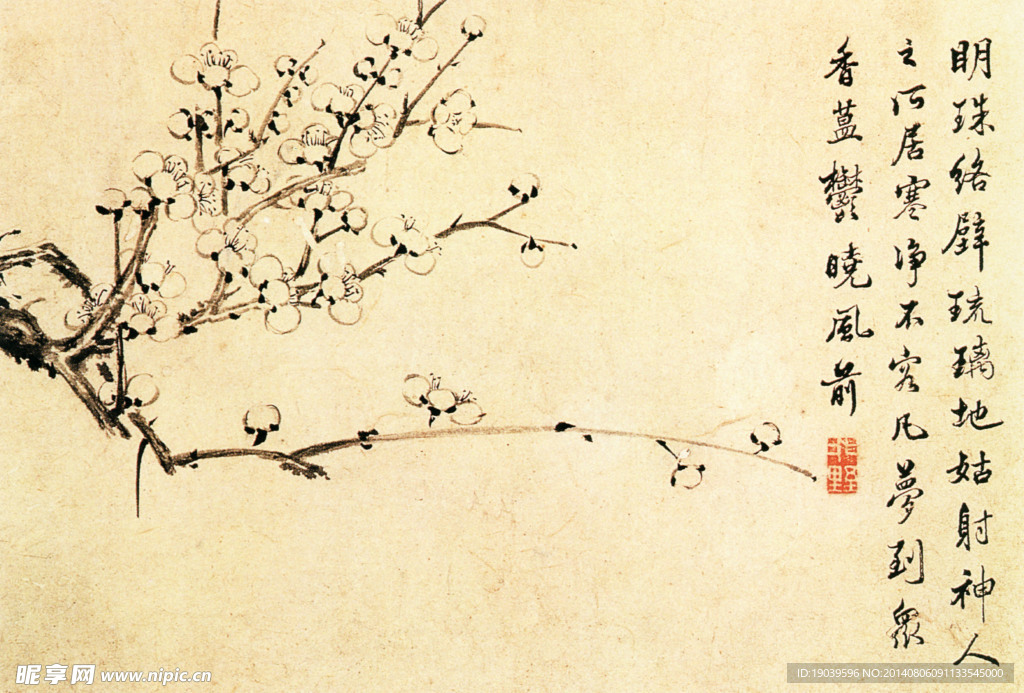 明珠絡壁琉璃地姑射神人
之所居寒淨不容凡夢到眾
香蒀鬱曉風前
昵享网 www.nipic.cn
ID:19039596 NO:20140806091133545000